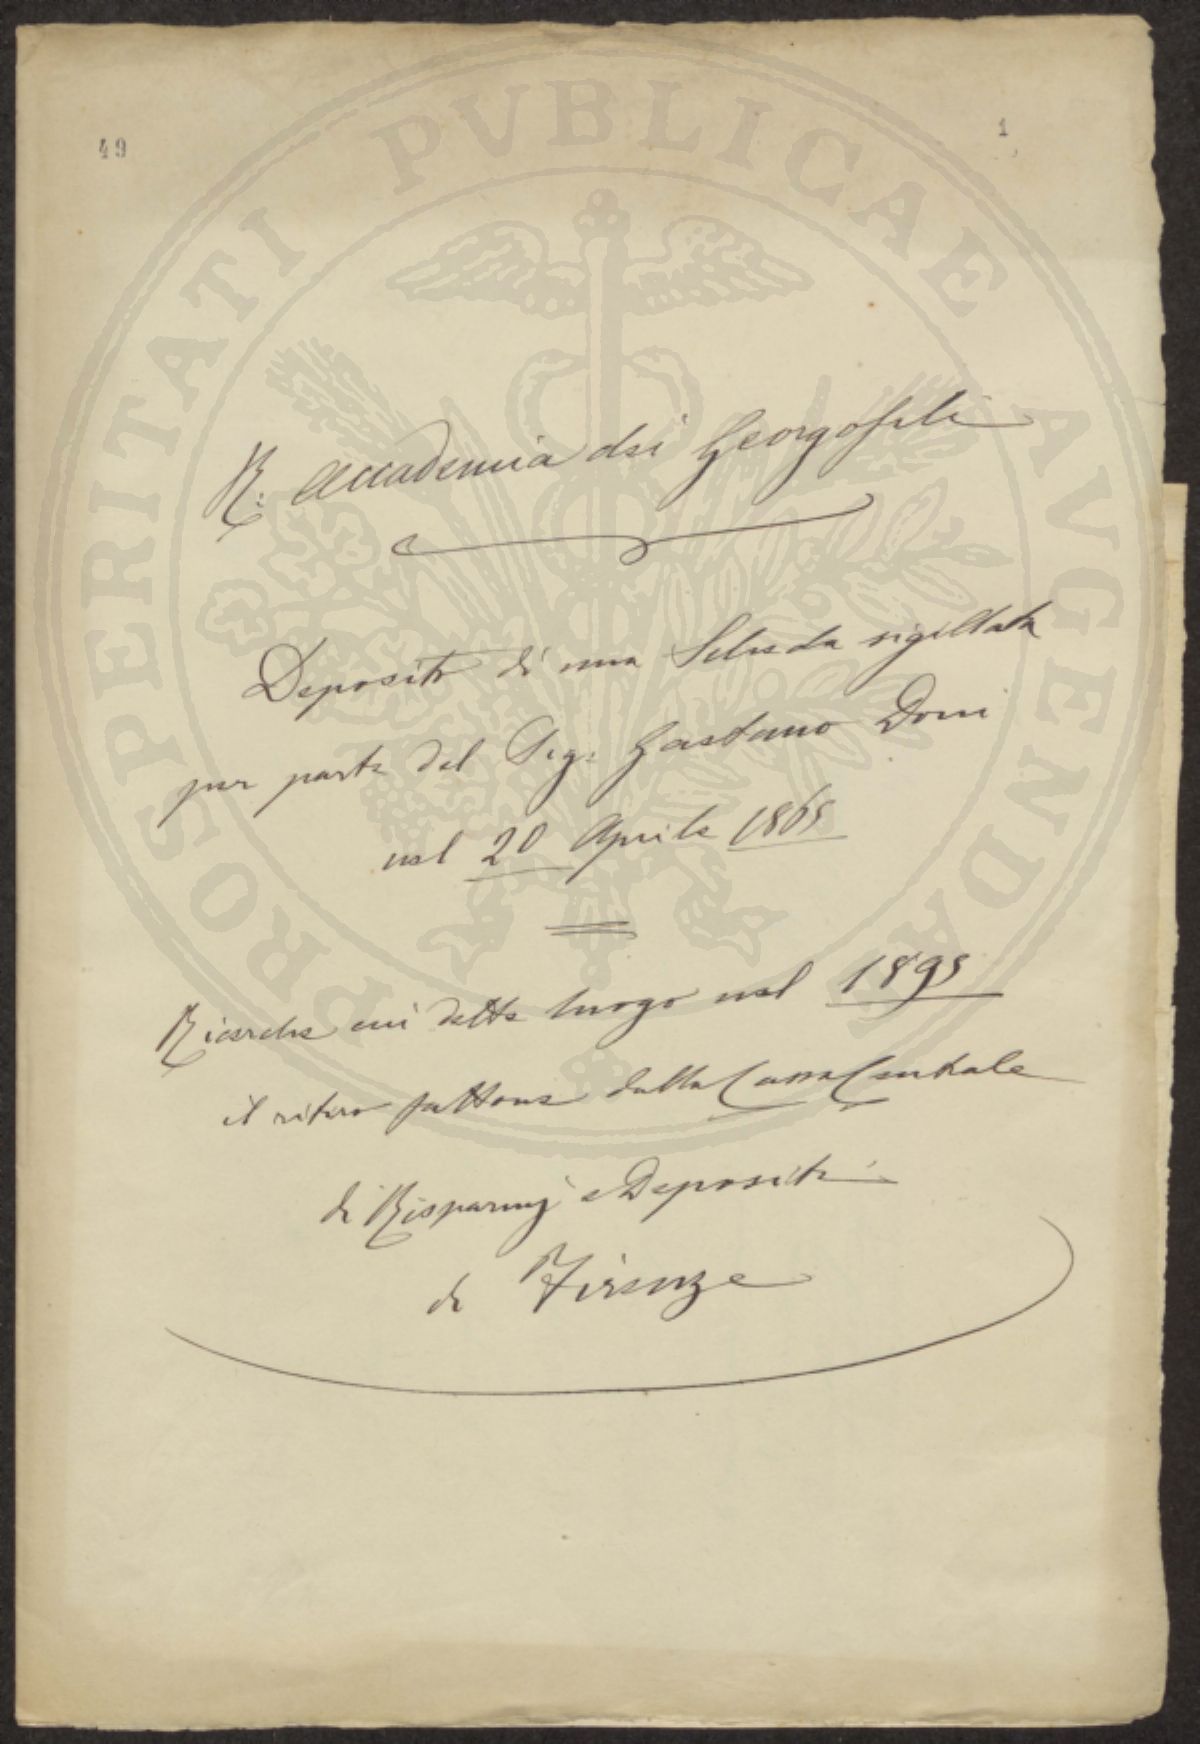 49
1
PROSPERITATI PVBLICAE AVGENDAE
R: Accademia dei Georgofili
Deposito di una Scheda sigillata
per parte del Sig: Gaetano Doni
nel 20 Aprile 1865
Ricerche cui dette luogo nel 1895
il ritiro fattone dalla Cassa Centrale
di Risparmj e Depositi
di Firenze